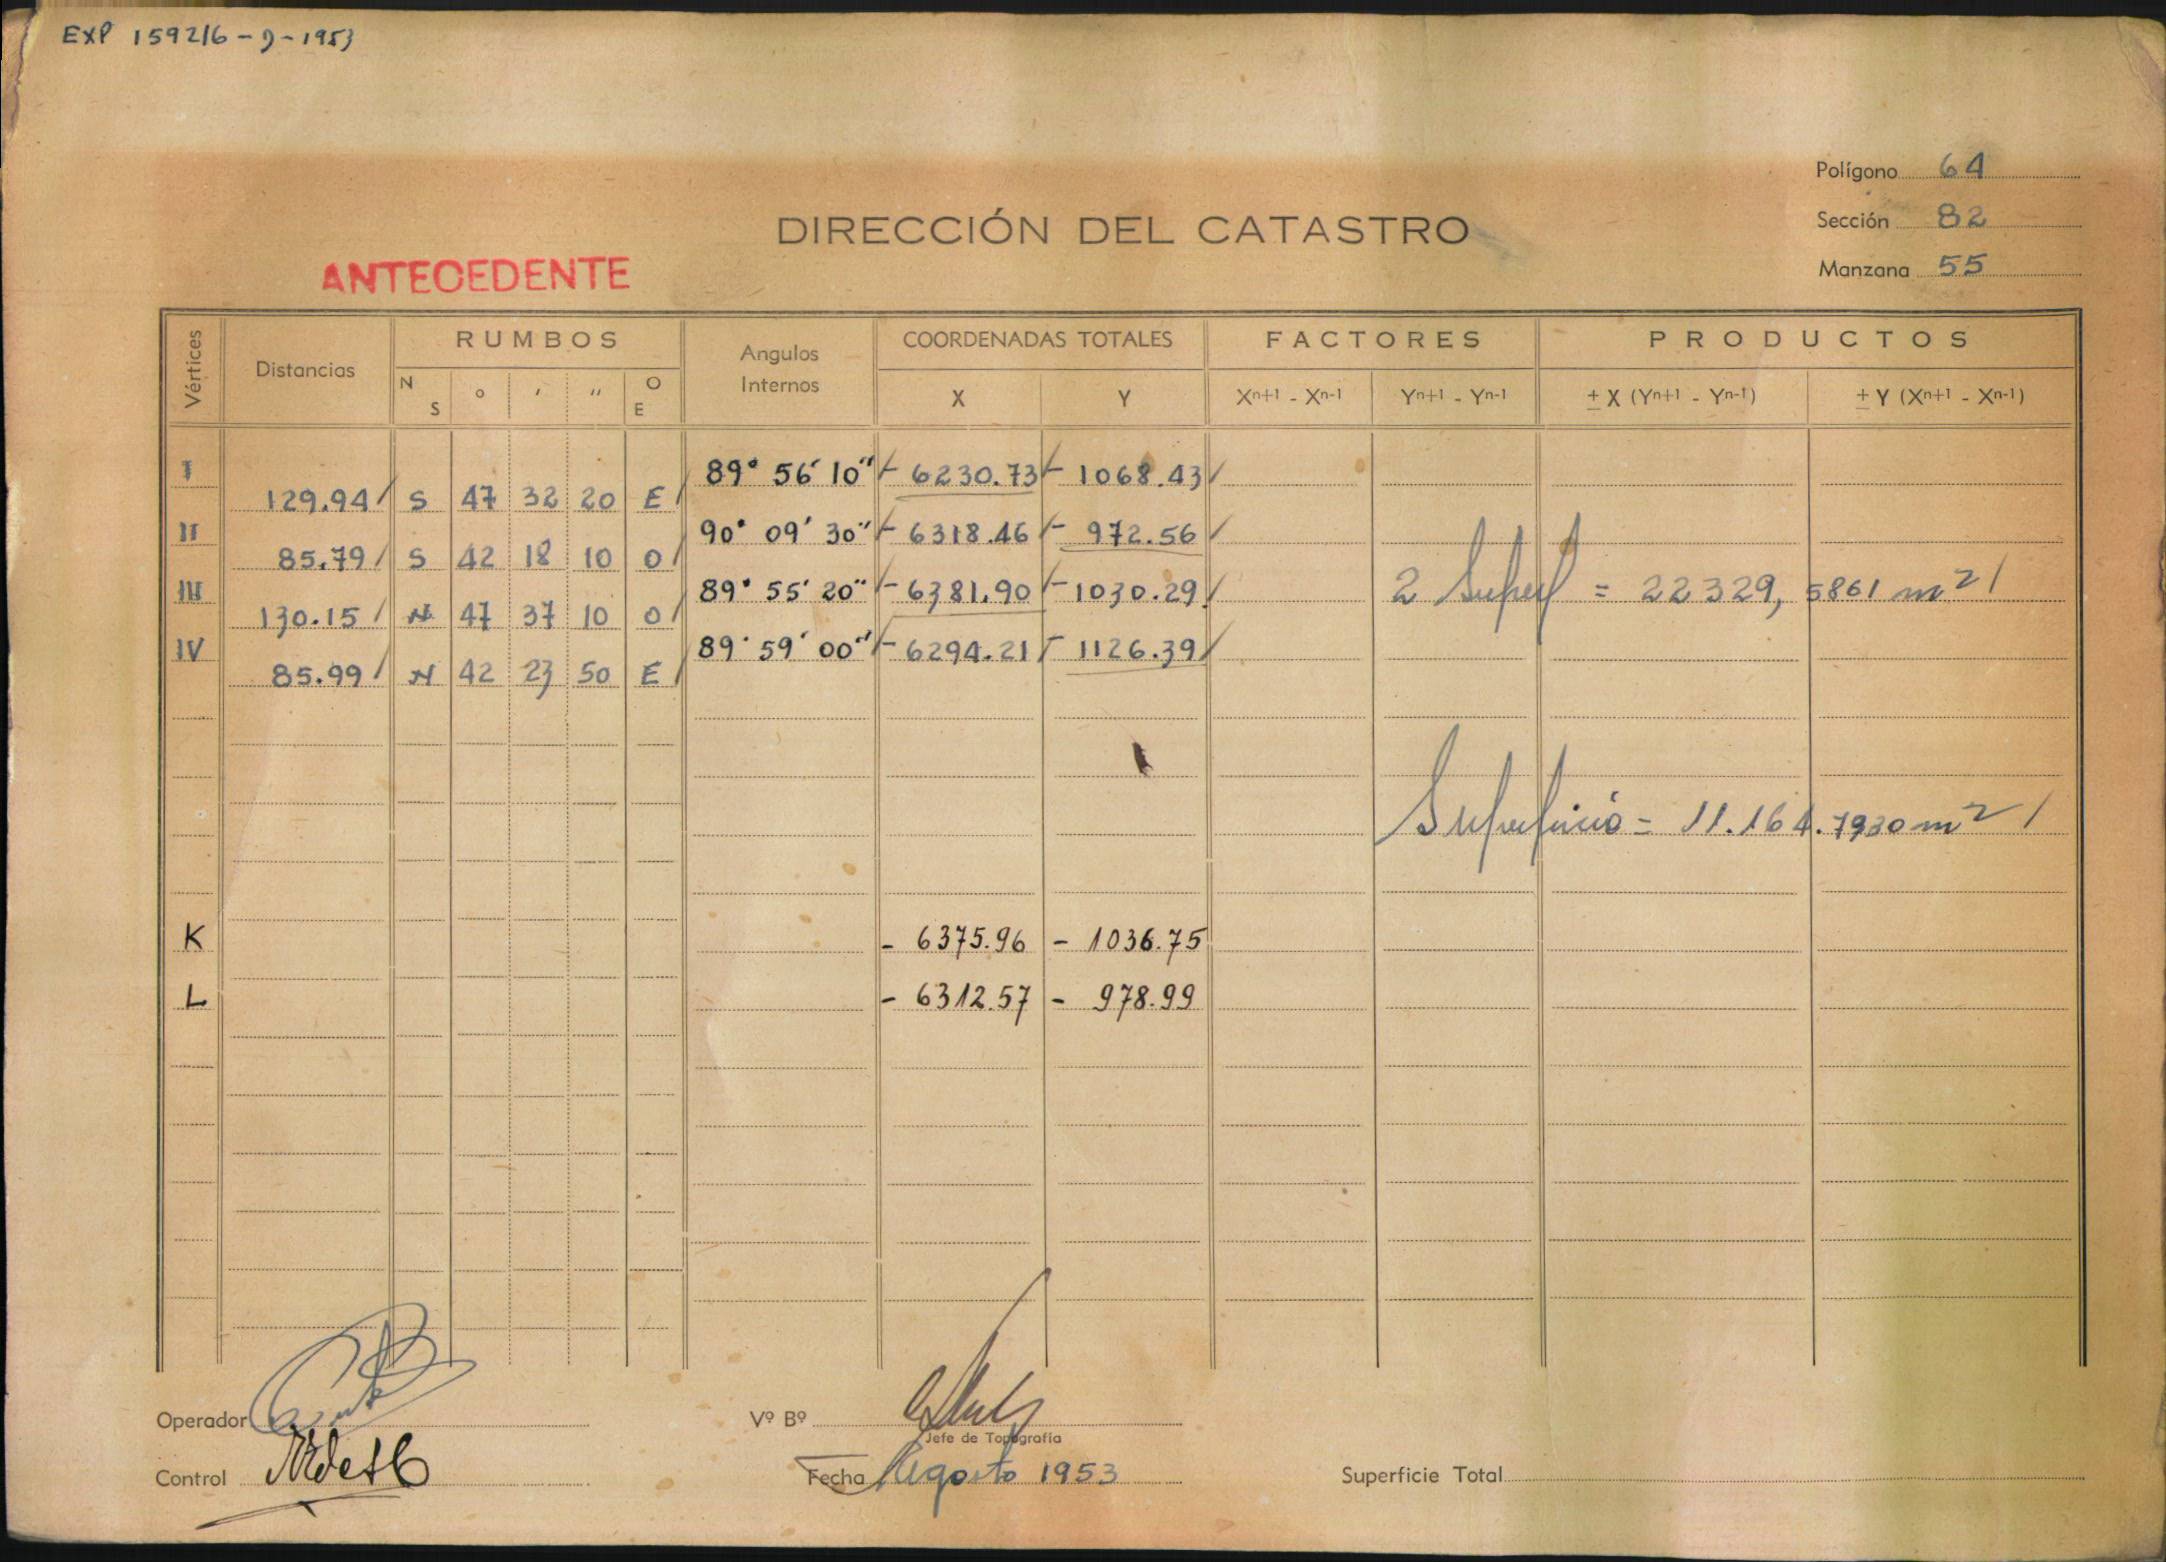 EXP 159216-D-1953
Polígono 64
Sección 82
Manzana 55
DIRECCIÓN DEL CATASTRO
ANTECEDENTE
Vértices Distancias RUMBOS Angulos Internos COORDENADAS TOTALES FACTORES PRODUCTOS
N S ° ' " O E X Y Xn+1 - Xn-1 Yn+1 - Yn-1 ± X (Yn+1 - Yn-1) ± Y (Xn+1 - Xn-1)
I 89° 56' 10" - 6230.73 - 1068.43
129.94 S 47 32 20 E
II 90° 09' 30" - 6318.46 - 972.56
85.79 S 42 18 10 O
III 89° 55' 20" - 6381.90 - 1030.29
2 Superf = 22329,5861 m2
130.15 N 47 37 10 O
IV 89° 59' 00" - 6294.21 - 1126.39
85.99 N 42 23 50 E
Superficie = 11.164.7930 m2
K - 6375.96 - 1036.75
L - 6312.57 - 978.99
Operador
Vº Bº
Jefe de Topografía
Control
Fecha Agosto 1953
Superficie Total